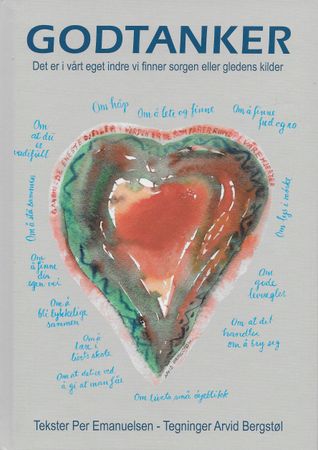 GODTANKER
Det er i vårt eget indre vi finner sorgen eller gledens kilder
Om håp
Om å lete og finne
Om å finne
fred og ro
Om
at du
er
verdifull
Om å stå sammen
Om lys i mørke
Om
å finne
din
egen vei
Om
gode
leveregler
Om å
bli lykkelige
sammen
Om at det
handler
om å bry seg
Om å
lære i
livets skole
Om at det er ved
å gi at man får
Om livets små øyeblikk
Tekster Per Emanuelsen - Tegninger Arvid Bergstøl